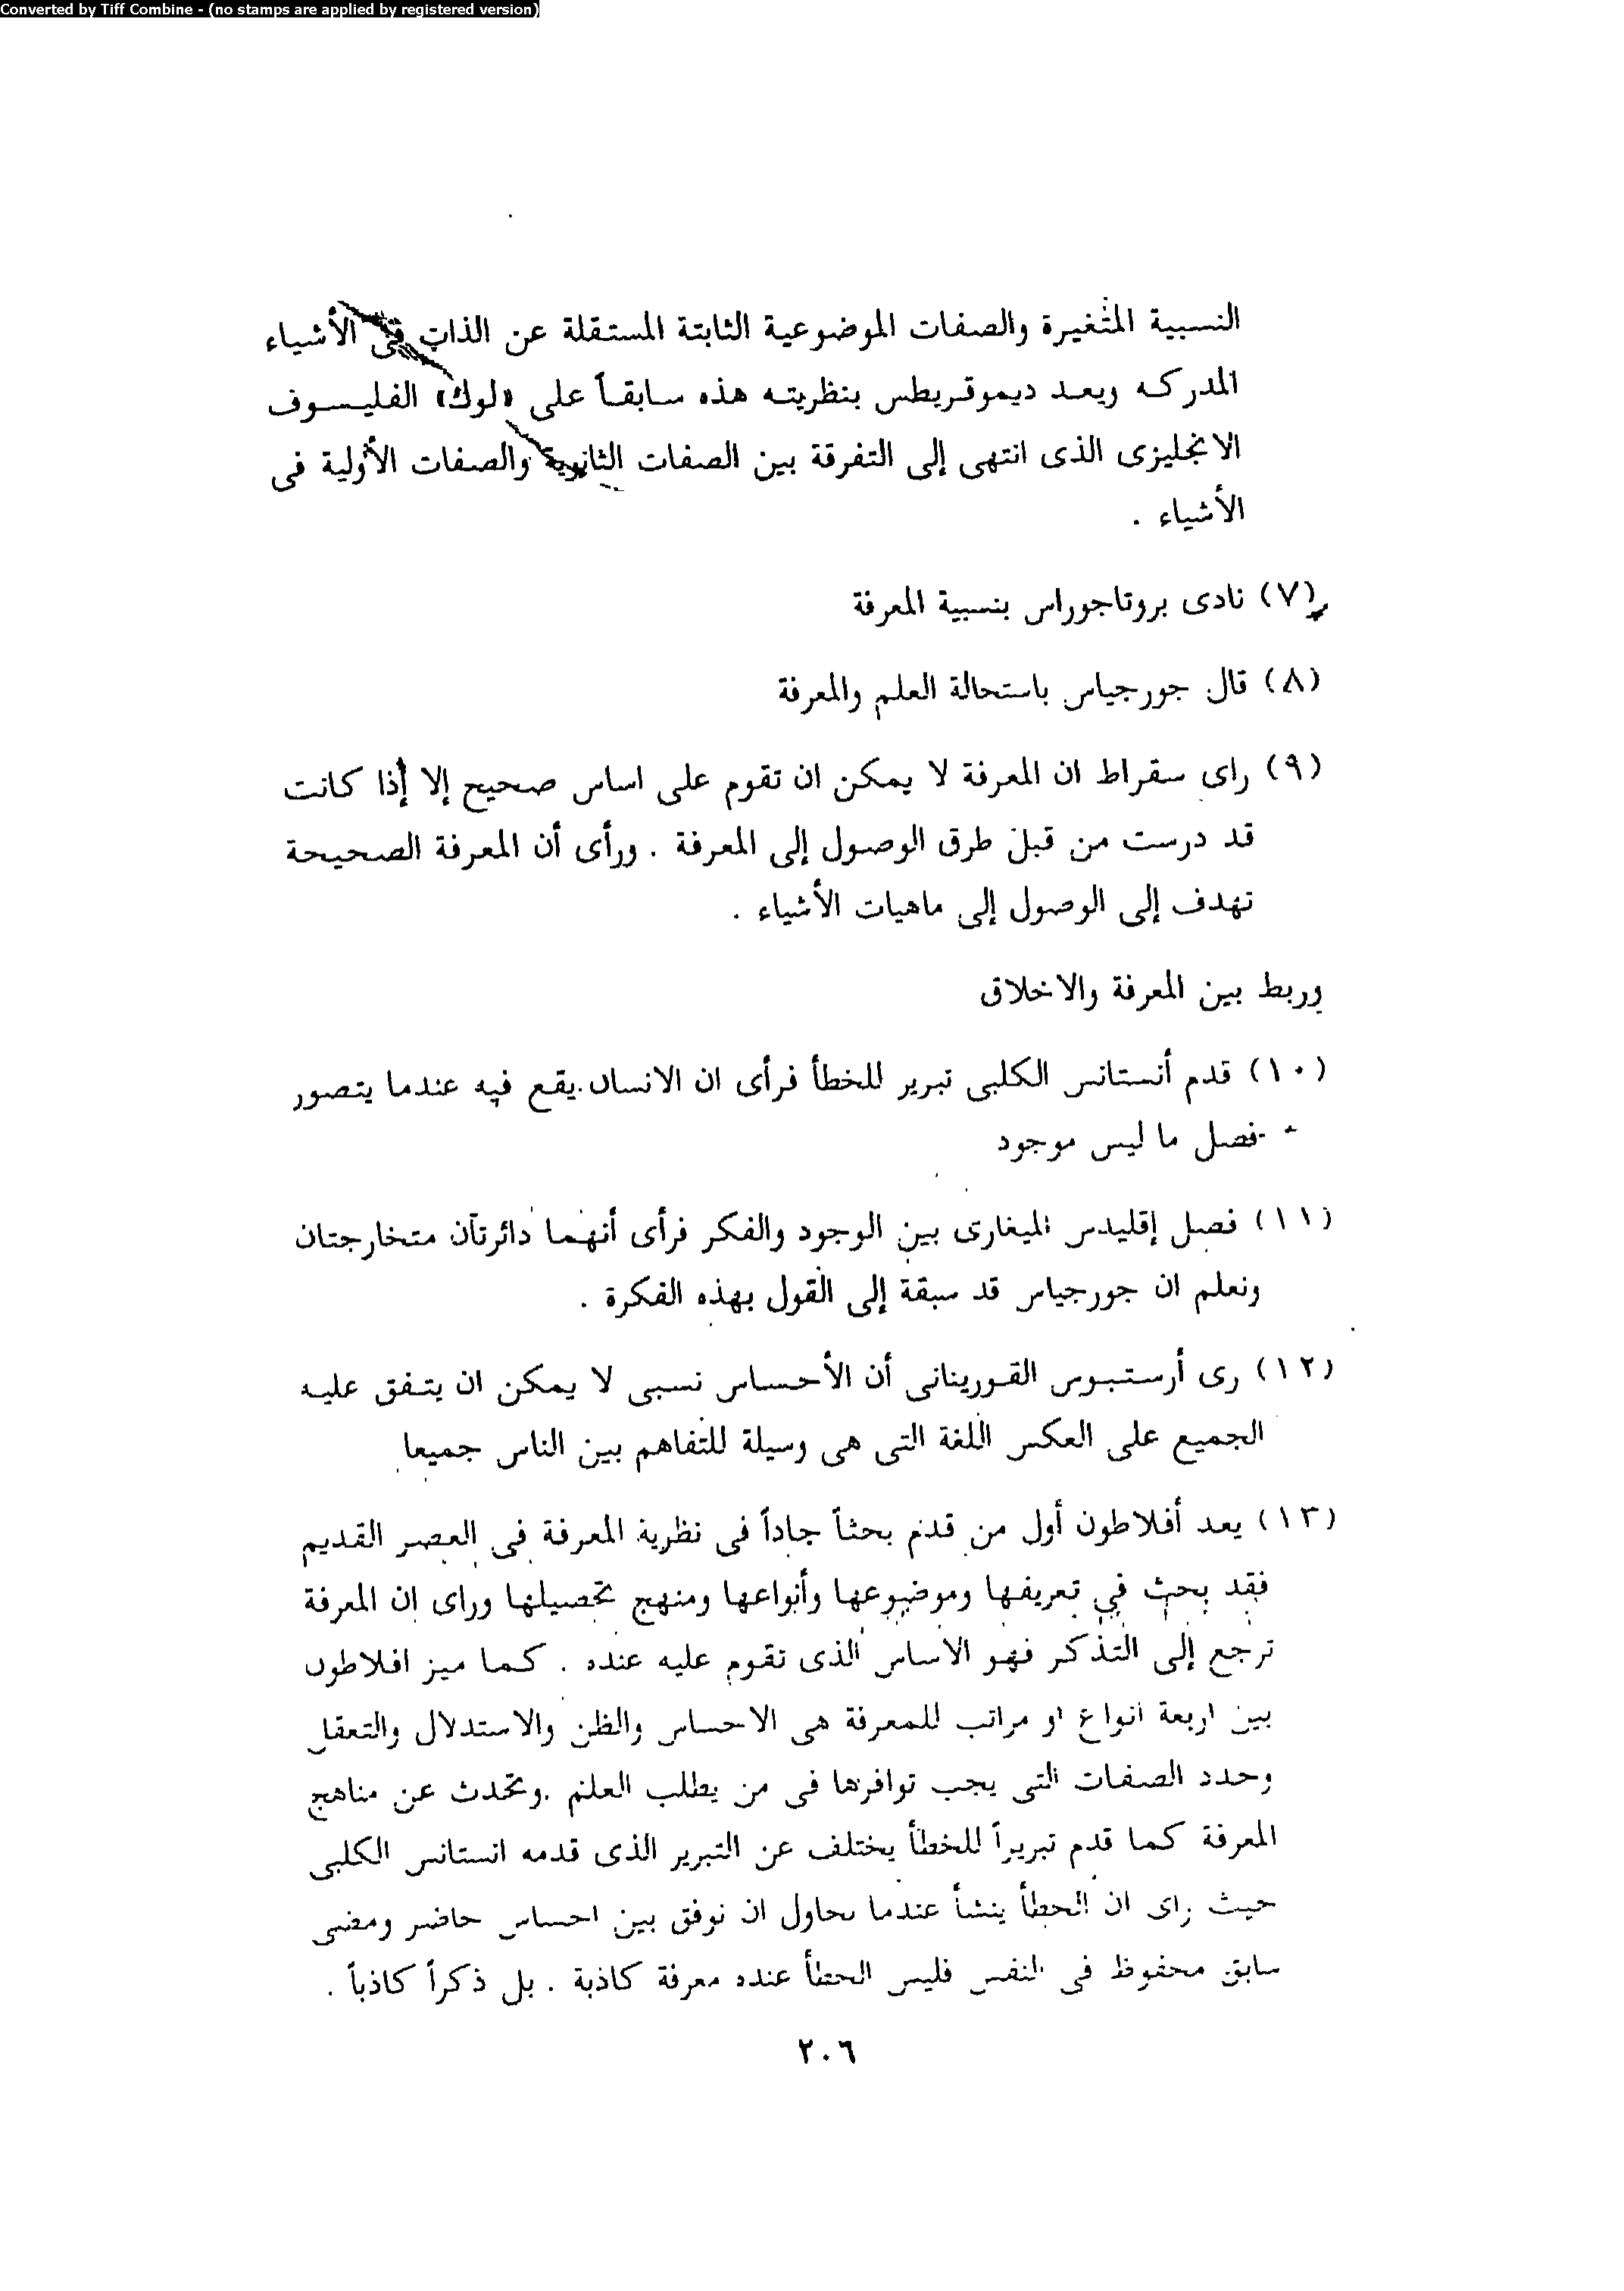 Converted by Tiff Combine - (no stamps are applied by registered version)
النسبية المتغيرة والصفات الموضوعية الثابتة المستقلة عن الذات فى الأشياء
المدركه ويعد ديموقريطس بنظريته هذه سابقاً على «لوك» الفليسوف
الانجليزى الذى انتهى إلى التفرقة بين الصفات الثانوية والصفات الأولية فى
الأشياء .
(٧) نادى بروتاجوراس بنسبية المعرفة
(٨) قال جورجياس باستحالة العلم والمعرفة
(٩) راى سقراط ان المعرفة لا يمكن ان تقوم على اساس صحيح إلا إذا كانت
قد درست من قبل طرق الوصول إلى المعرفة . ورأى أن المعرفة الصحيحة
تهدف إلى الوصول إلى ماهيات الأشياء .
وربط بين المعرفة والاخلاق
(١٠) قدم أنستانس الكلبى تبرير للخطأ فرأى ان الانسان يقع فيه عندما يتصور
فصل ما ليس موجود
(١١) فصل إقليدس الميغارى بين الوجود والفكر فرأى أنهما دائرتان متخارجتان
ونعلم ان جورجياس قد سبقة إلى القول بهذه الفكرة .
(١٢) رى أرستبوس القورينانى أن الأحساس نسبى لا يمكن ان يتفق عليه
الجميع على العكس اللغة التى هى وسيلة للتفاهم بين الناس جميعا
(١٣) يعد أفلاطون أول من قدم بحثاً جاداً فى نظرية المعرفة فى العصر القديم
فقد بحث في تعريفها وموضوعها وأنواعها ومنهج تحصيلها وراى ان المعرفة
ترجع إلى التذكر فهو الأساس الذى تقوم عليه عنده . كما ميز افلاطون
بين اربعة انواع او مراتب للمعرفة هى الاحساس والظن والاستدلال والتعقل
وحدد الصفات التى يجب توافرها فى من يطلب العلم .وتحدث عن مناهج
المعرفة كما قدم تبريراً للخطأ يختلف عن التبرير الذى قدمه انستانس الكلبى
حيث راى ان الخطأ ينشأ عندما نحاول ان نوفق بين احساس حاضر ومضى
سابق محفوظ فى النفس فليس الخطأ عنده معرفة كاذبة . بل ذكراً كاذباً .
٢٠٦